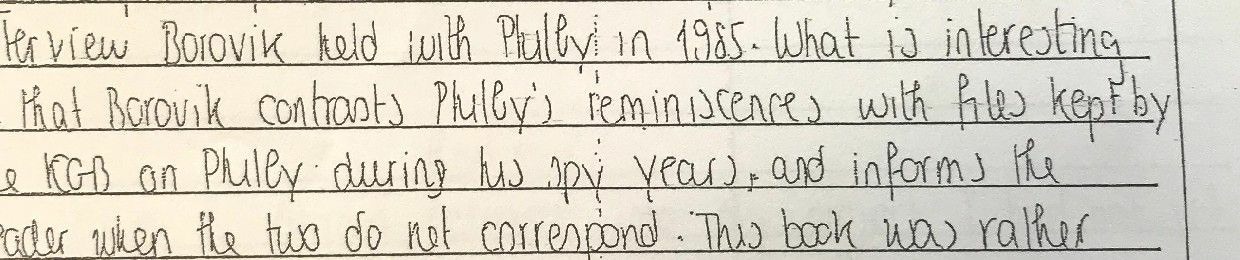 terview Borovik held with Philby in 1985. What is interesting
that Borovik contrasts Philby's reminiscences with files kept by
e KGB on Philby during his spy years, and informs the
eader when the two do not correspond. This book was rather